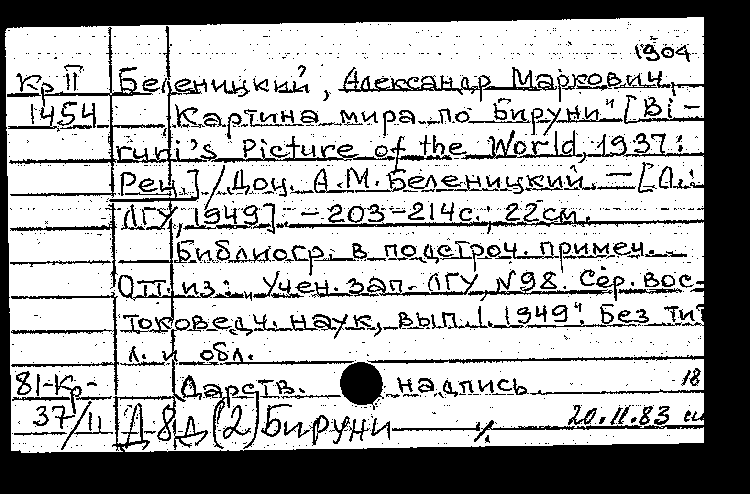 1904
Кр II Беленицкий, Александр Маркович.
1454 Картина мира по Бируни" [Bi-
runi's Picture of the World, 1937:
Рец.] / Доц. А.М. Беленицкий. — [Л.:
ЛГУ, 1949]. - 203-214с.; 22см.
Библиогр. в подстроч. примеч.
Отт. из: „Учен. зап. ЛГУ, N98. Сер. вос-
токоведч. наук, вып. 1. 1949". Без тит
л. и обл.
81-Кр- Дарств. надпись. 18
37/11 Д 8д(2) Бируни 20.11.83